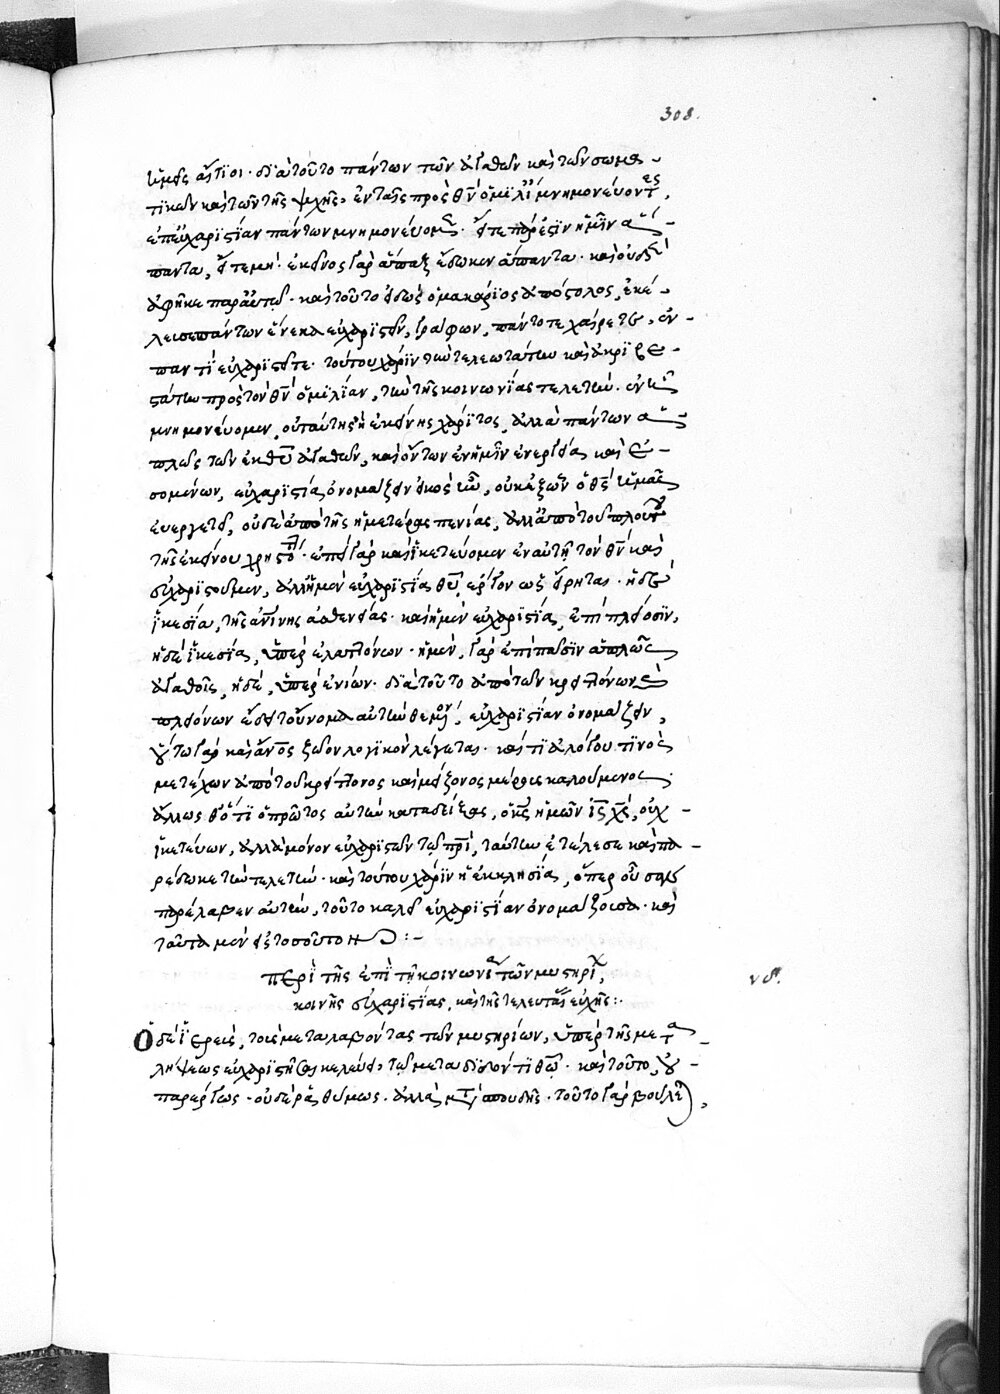 308.
ὑμᾶς ἄξιοι· διὰ τοῦτο πάντων τῶν ἀγαθῶν καὶ τῶν σωμα-
τικῶν καὶ τῶν τῆς ψυχῆς, ἐν ταῖς πρὸς θν̄ ὁμιλί μνημονεύοντες,
ἐπ' εὐχαριστίαν πάντων μνημονεύομεν· ἅ τε πάρεστιν ἡμῖν ἅ-
παντα, ἅ τε μή· ἐκεῖνος γὰρ ἅπαξ ἔδωκεν ἅπαντα· καὶ οὐδὲν
ἀφῆκε παρ' αὐτῷ· καὶ τοῦτο εἰδὼς ὁ μακάριος ἀπόστολος, ἐκέ-
λευσε πάντων ἕνεκα εὐχαριστεῖν, γράφων, πάντοτε χαίρετε, ἐν
παντὶ εὐχαριστεῖτε· τούτου χάριν τὴν τελεωτάτην καὶ ἀκριβε-
στάτην πρὸς τὸν θν̄ ὁμιλίαν, τὴν τῆς κοινωνίας τελετὴν· ἐν ᾗ
μνημονεύομεν, οὐ ταύτης ἢ ἐκείνης χάριτος, ἀλλὰ πάντων ἁ-
πλῶς τῶν ἐκ θῦ ἀγαθῶν, καὶ ὄντων ἐν ἡμῖν ἐνεργείᾳ καὶ ἐ-
σομένων, εὐχαριστίας ὀνομάζειν εἰκὸς ἦν, οὐκ ἐξ ὧν ὁ θς̄ ἡμᾶς
εὐεργετεῖ, οὐδὲ ἀπὸ τῆς ἡμετέρας πενίας, ἀλλὰ ἀπὸ τοῦ πλούτου
τῆς ἐκείνου χρηστό· ἐπεὶ γὰρ καὶ ἱκετεύομεν ἐν αὐτῇ τὸν θν̄ καὶ
εὐχαριστοῦμεν, ἀλλ' ἡ μὲν εὐχαριστία θῦ ἔργον ὡς εἴρηται· ἡ δὲ
ἱκεσία, τῆς ἀνίνης ἀσθενείας· καὶ ἡ μὲν εὐχαριστία, ἐπὶ πλείοσιν,
ἡ δὲ ἱκεσία, ὑπὲρ ἐλαττόνων· ἡ μὲν, γὰρ ἐπὶ πᾶσιν ἁπλῶς
ἀγαθοῖς, ἡ δὲ, ὑπὲρ ἐνίων· διὰ τοῦτο ἀπὸ τῶν κρειττόνων καὶ
πλειόνων ἔδει τοὔνομα αὐτὴν θεμένους, εὐχαριστίαν ὀνομάζειν,
οὕτω γὰρ καὶ ἄνος ζῶον λογικὸν λέγεται· καί τι ἀλόγου τινὸς
μετέχων ἀπὸ τοῦ κρείττονος καὶ μείζονος μέρους καλούμενος·
ἄλλως θ' ὅτι ὁ πρῶτος αὐτὴν καταδείξας, ὁ κς̄ ἡμῶν ις̄ χς̄, οὐχ
ἱκετεύων, ἀλλὰ μόνον εὐχαριστῶν τῷ πρί, ταύτην ἐτέλεσε καὶ πα-
ρέδωκε τὴν τελετὴν· καὶ τούτου χάριν ἡ ἐκκλησία, ὅπερ οὖσαν
παρέλαβεν αὐτὴν, τοῦτο καλεῖ εὐχαριστίαν ὀνομάζουσα· καὶ
ταῦτα μὲν εἰς τοσοῦτον :-
περὶ τῆς ἐπὶ τῇ κοινωνίᾳ τῶν μυστηρί,
κοινῆς εὐχαριστίας, καὶ τῆς τελευταίας εὐχῆς:.
νδ.
Ὁ δὲ ἱερεὺς, τοὺς μεταλαβόντας τῶν μυστηρίων, ὑπὲρ τῆς μετα-
λήψεως εὐχαριστῆσαι κελεύει τῷ μεταδιδόντι θῶ· καὶ τοῦτο, οὐ
παρέργως· οὐδὲ ῥαθύμως· ἀλλὰ μετὰ σπουδῆς· τοῦτο γὰρ βούλε,